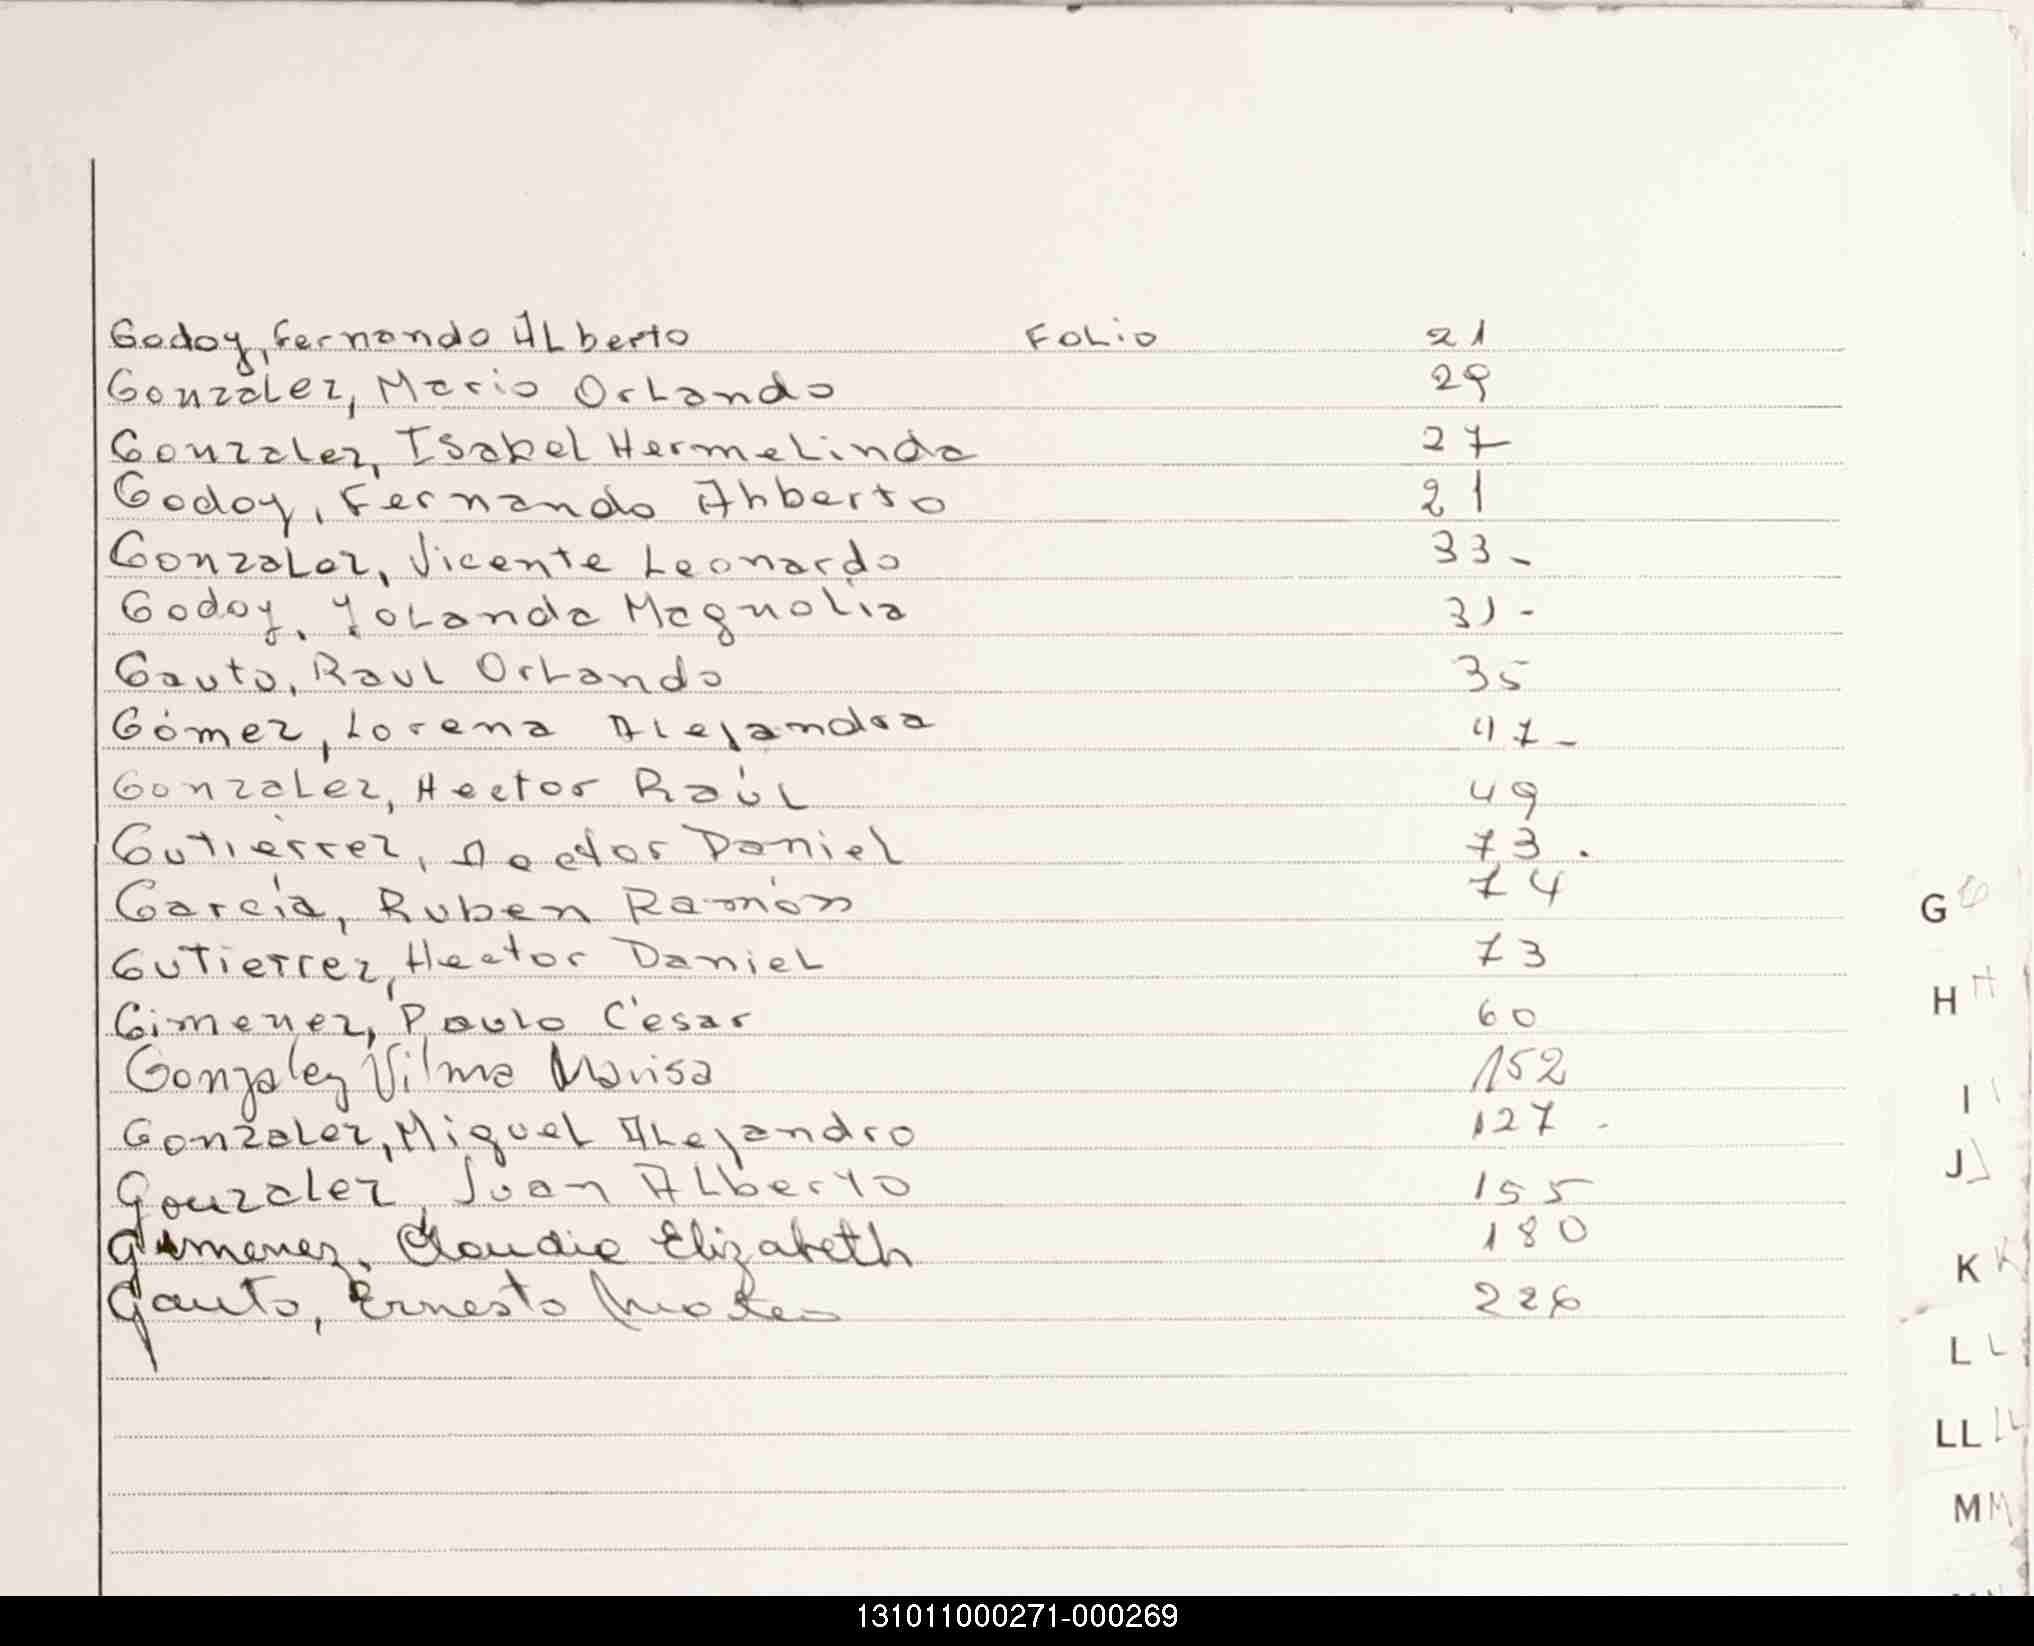 Godoy, Fernando ALberto FoLio 21
GonzaLez, Mario OrLando 29
Gonzalez, Isabel HermeLinda 27
Godoy, Fernando Ahberto 21
GonzaLez, Vicente Leonardo 33-
Godoy, YoLanda MagnoLia 31-
Gauto, RauL OrLando 35
Gómez, Lorena ALejandra 47-
GonzaLez, Hector RaúL 49
Gutiérrez, Daniel 73.
García, Ruben Ramón 74
GuTierrez, Hector DanieL 73
Gimenez, Paulo César 60
Gonzalez Vilma Marisa 152
GonzaLez, MigueL ALejandro 127.
Gonzalez, Juan ALberto 155
Gimenez, Claudia Elizabeth 180
Gauto, Ernesto Mateo 226
G G
H H
I I
J J
K K
L L
LL LL
M M
131011000271-000269